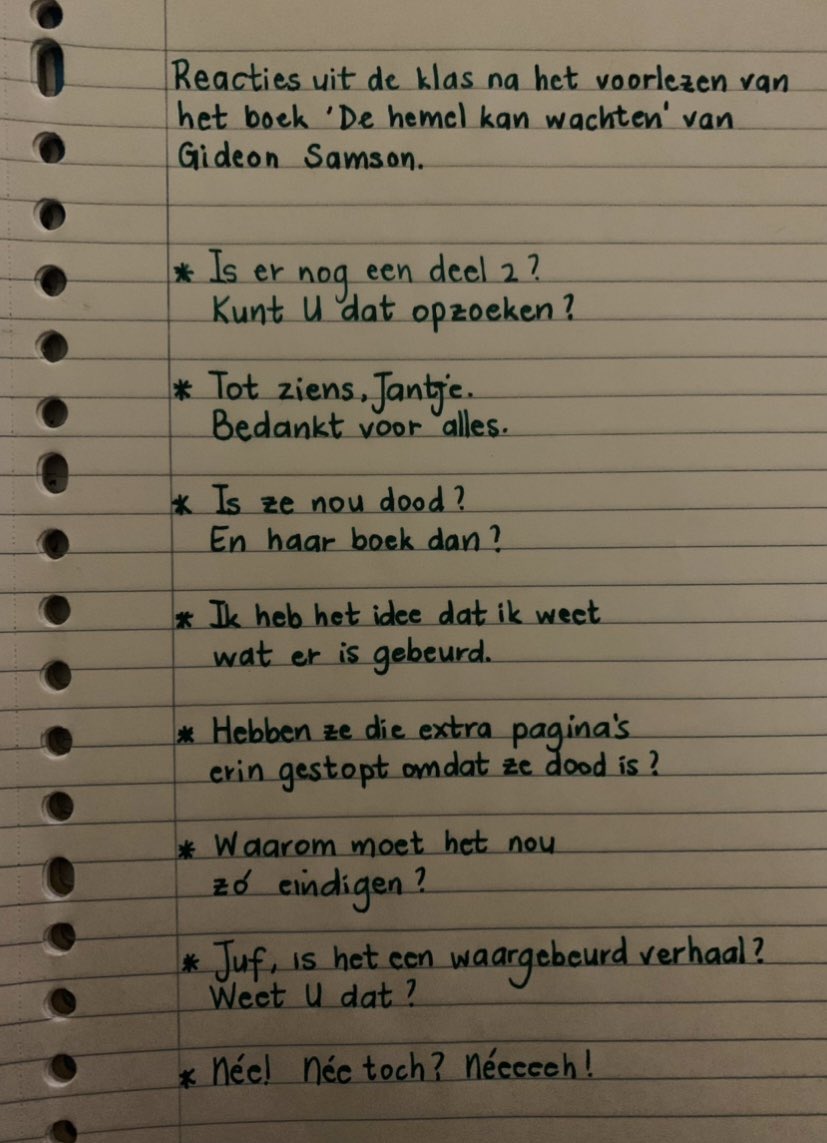 Reacties uit de klas na het voorlezen van
het boek 'De hemel kan wachten' van
Gideon Samson.
* Is er nog een deel 2?
Kunt U dat opzoeken?
* Tot ziens, Jantje.
Bedankt voor alles.
* Is ze nou dood?
En haar boek dan?
* Ik heb het idee dat ik weet
wat er is gebeurd.
* Hebben ze die extra pagina's
erin gestopt omdat ze dood is?
* Waarom moet het nou
zó eindigen?
* Juf, is het een waargebeurd verhaal?
Weet U dat?
* Née! Née toch? Néeeeeh!